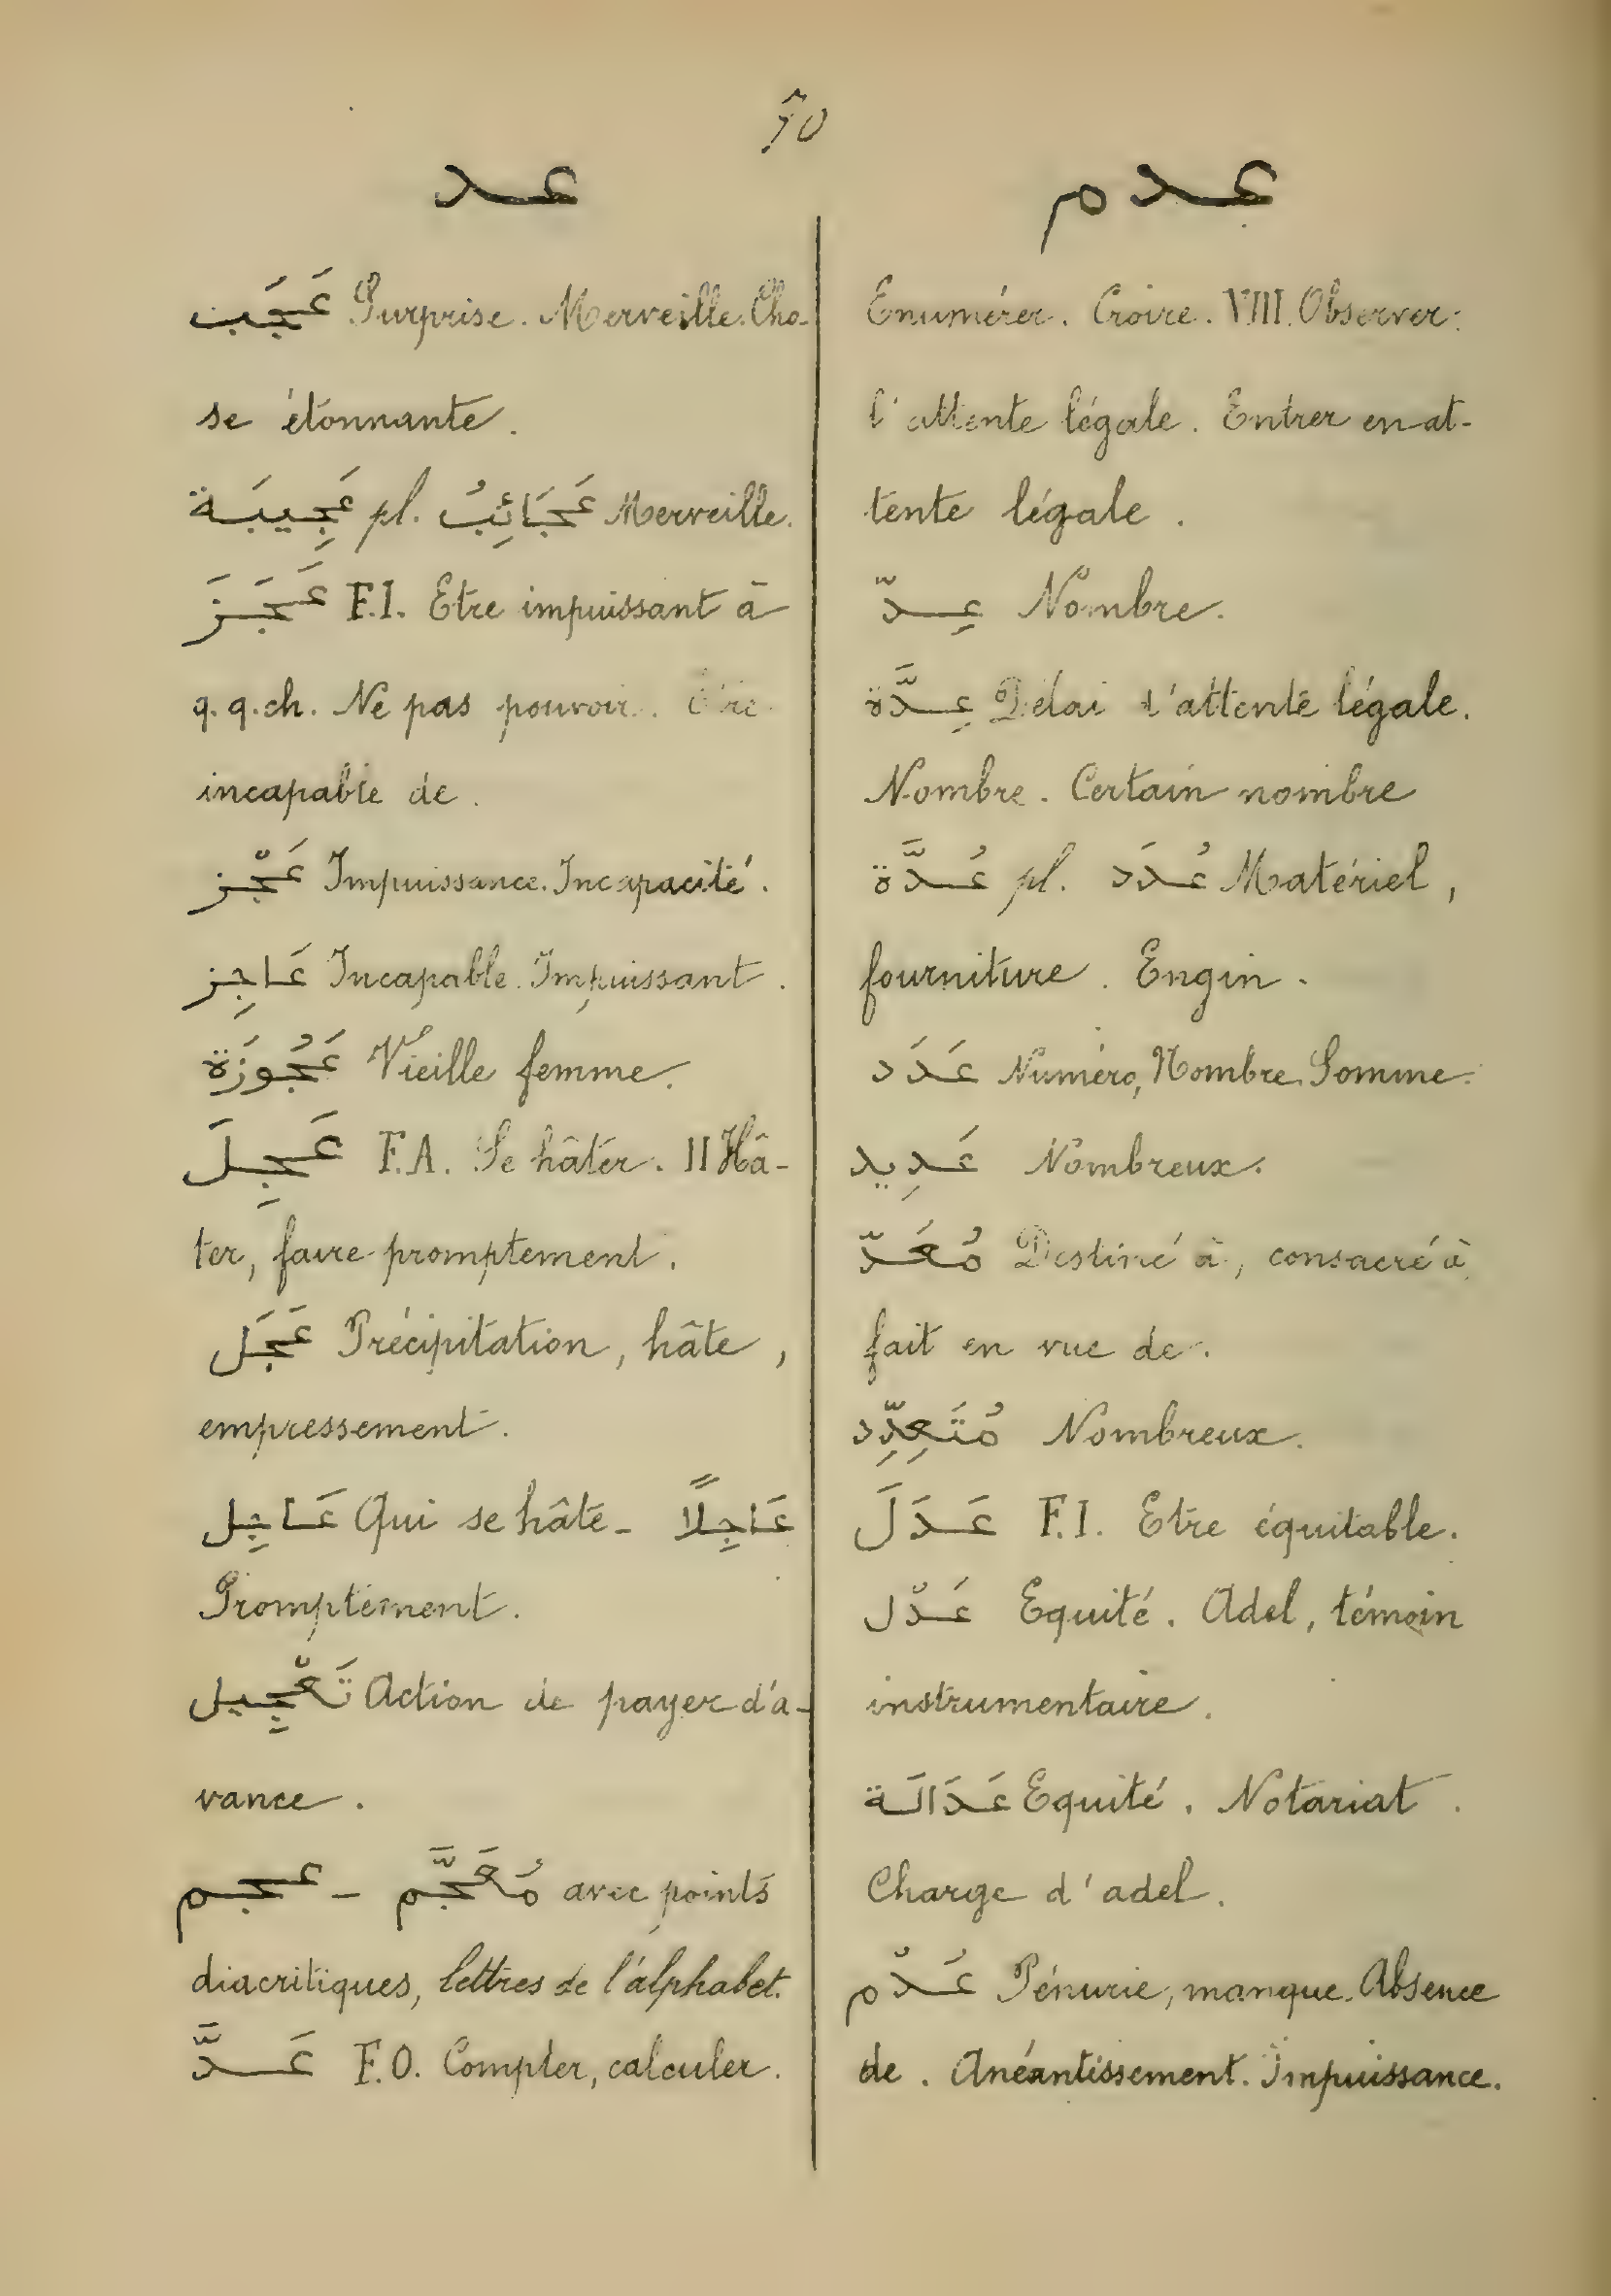 70
عد
عَجَب Surprise. Merveille. Cho-
se étonnante.
عَجِيبَة pl. عَجَائِبُ Merveille.
عَجَزَ F.I. Etre impuissant à
q.q.ch. Ne pas pouvoir. Etre
incapable de.
عَجْز Impuissance. Incapacité.
عَاجِز Incapable. Impuissant.
عَجُوزَة Vieille femme.
عَجِلَ F.A. Se hâter. II Hâ-
ter, faire promptement.
عَجَل Précipitation, hâte,
empressement.
عَاجِل Qui se hâte - عَاجِلًا
Promptement.
تَعْجِيل Action de payer d'a-
vance.
عجم - مُعَجَّم avec points
diacritiques, lettres de l'alphabet.
عَدَّ F.O. Compter, calculer.
عدم
Enumérer. Croire. VIII. Observer
l'attente légale. Entrer en at-
tente légale.
عِدّ Nombre.
عِدَّة Délai d'attente légale.
Nombre. Certain nombre
عُدَّة pl. عُدَد Matériel,
fourniture. Engin.
عَدَد Numéro, Nombre. Somme.
عَدِيد Nombreux.
مُعَدّ Destiné à, consacré à
fait en vue de.
مُتَعِدِّد Nombreux.
عَدَلَ F.I. Etre équitable.
عَدْل Equité. Adel, témoin
instrumentaire.
عَدَالَة Equité. Notariat.
Charge d'adel.
عُدْم Pénurie, manque. Absence
de. Anéantissement. Impuissance.